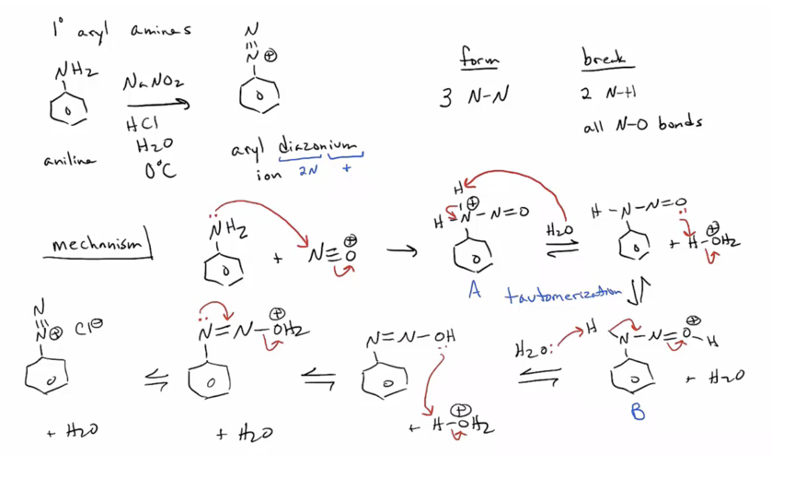 1° aryl amines
NH2
NaNO2
HCl
H2O
0°C
aniline
N
N ⊕
aryl diazonium
ion 2N +
form
3 N-N
break
2 N-H
all N-O bonds
mechanism
NH2
+ N≡O ⊕
H
H-N-N=O ⊕
A
H2O
H-N-N=O
+ H-OH2 ⊕
tautomerization
N
N ⊕ Cl⊖
+ H2O
N=N-OH2 ⊕
+ H2O
N=N-OH
+ H-OH2 ⊕
H2O:
H
N-N=O-H ⊕
+ H2O
B